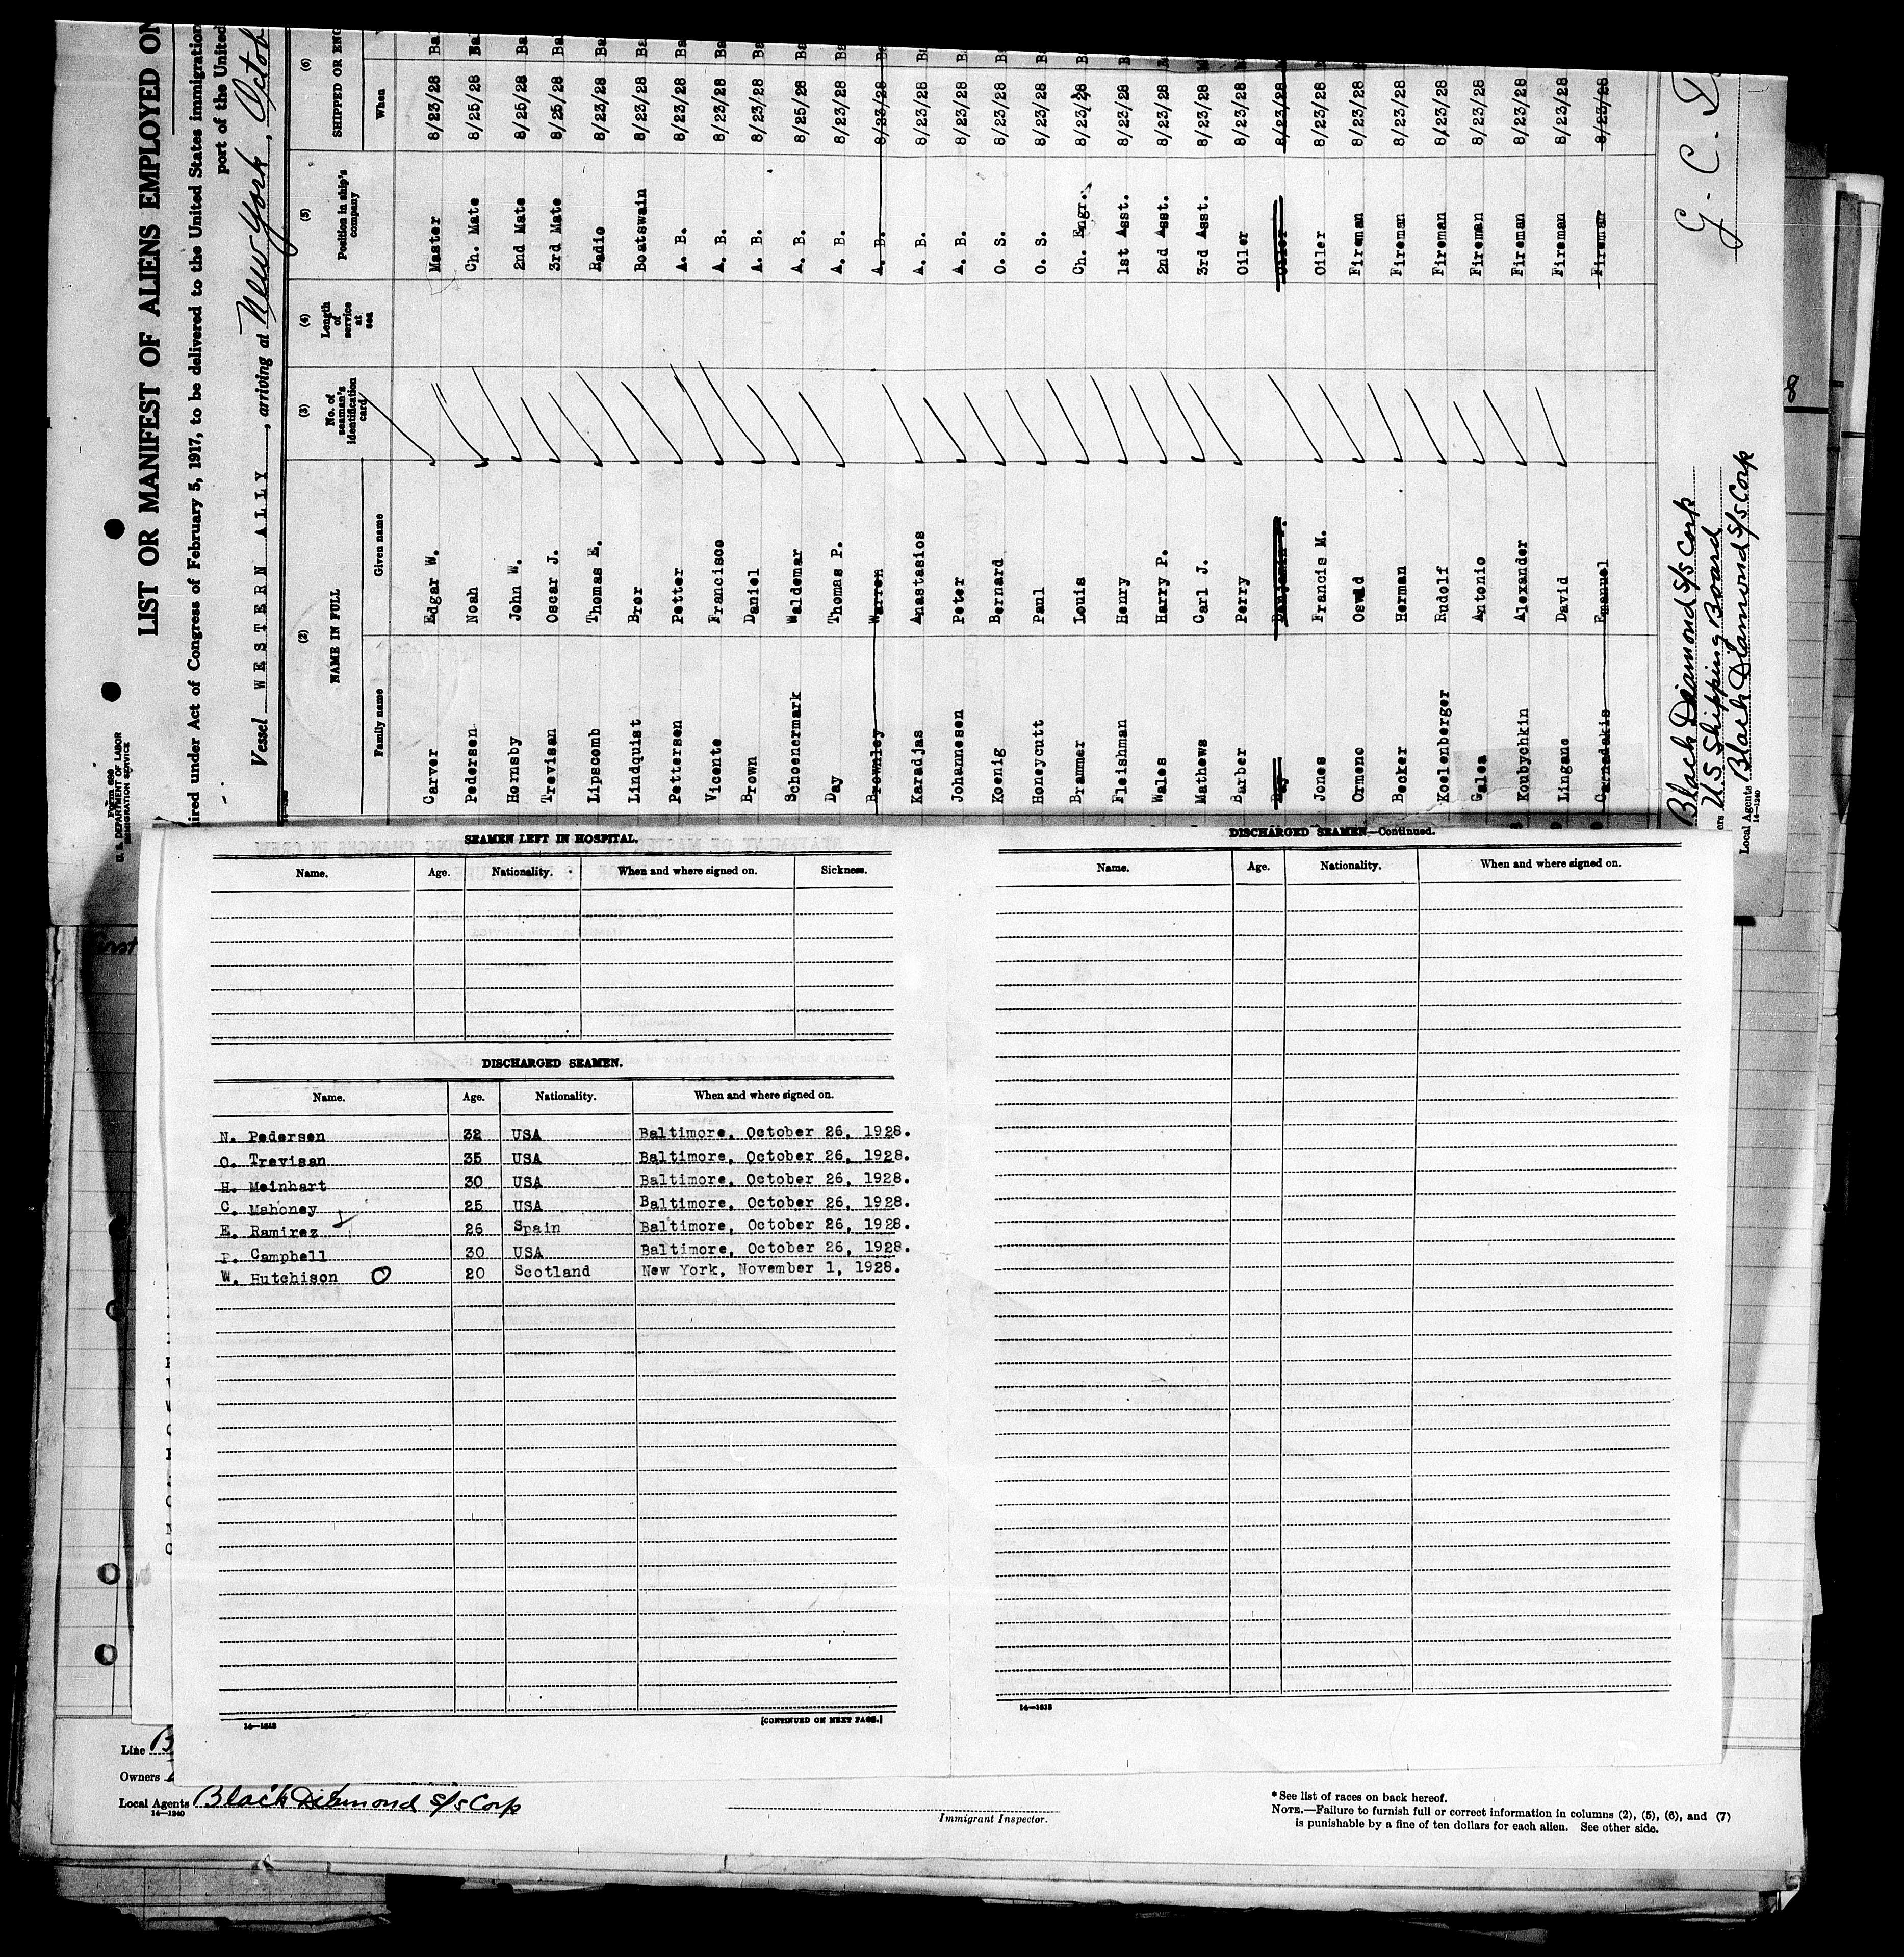 Form 680
U. S. DEPARTMENT OF LABOR
IMMIGRATION SERVICE
LIST OR MANIFEST OF ALIENS EMPLOYED ON
ired under Act of Congress of February 5, 1917, to be delivered to the United States immigration
port of the United
Vessel WESTERN ALLY, arriving at New York, Octob
(2) (3) (4) (5) (6)
NAME IN FULL No. of seaman's identification card Length of service at sea Position in ship's company SHIPPED OR ENG
Family name Given name When
Carver Edgar W. Master 8/23/28 Bal
Pedersen Noah Ch. Mate 8/25/28 Bal
Hornsby John W. 2nd Mate 8/25/28 Ba
Trevisan Oscar J. 3rd Mate 8/25/28 Ba
Lipscomb Thomas E. Radio 8/23/28 Ba
Lindquist Bror Boatswain 8/23/28 Ba
Pettersen Petter A. B. 8/23/28 Ba
Vicente Francisco A. B. 8/23/28 Ba
Brown Daniel A. B. 8/23/28 Ba
Schoenermark Waldemar A. B. 8/25/28 Ba
Day Thomas P. A. B. 8/23/28 Ba
Brownley Warren A. B. 8/23/28 Ba
Karadjas Anastasios A. B. 8/23/28 Ba
Johannesen Peter A. B. 8/23/28 Ba
Koenig Bernard O. S. 8/23/28 Ba
Honeycutt Paul O. S. 8/23/28 Ba
Brammer Louis Ch. Engr. 8/23/28 Ba
Fleishman Henry 1st Asst. 8/23/28 B
Wales Harry P. 2nd Asst. 8/23/28
Mathews Carl J. 3rd Asst. 8/23/28
Barber Perry Oiler 8/23/28
Ray Benjamin F. Oiler 8/23/28
Jones Francis M. Oiler 8/23/28
Ormeno Oswld Fireman 8/23/28
Becker Herman Fireman 8/23/28
Koelenberger Rudolf Fireman 8/23/28
Galea Antonio Fireman 8/23/28
Koubychkin Alexander Fireman 8/23/28
Lingane David Fireman 8/23/28
Carnadakis Emanuel Fireman 8/23/28
Black Diamond S/S Corp
ers US Shipping Board
Local Agents Black Diamond S/S Corp
14—1240
G. C. D
8
SEAMEN LEFT IN HOSPITAL.
Name. Age. Nationality. When and where signed on. Sickness.
DISCHARGED SEAMEN.
Name. Age. Nationality. When and where signed on.
N. Pedersen 32 USA Baltimore, October 26, 1928.
O. Trevisan 35 USA Baltimore, October 26, 1928.
H. Meinhart 30 USA Baltimore, October 26, 1928.
C. Mahoney 25 USA Baltimore, October 26, 1928.
E. Ramirez 26 Spain Baltimore, October 26, 1928.
P. Camphell 30 USA Baltimore, October 26, 1928.
W. Hutchison 20 Scotland New York, November 1, 1928.
14—1613
[CONTINUED ON NEXT PAGE.]
DISCHARGED SEAMEN—Continued.
Name. Age. Nationality. When and where signed on.
14—1613
Line B
Owners
Local Agents Black Diamond S/S Corp
14—1240
Immigrant Inspector.
* See list of races on back hereof.
NOTE.—Failure to furnish full or correct information in columns (2), (5), (6), and (7)
is punishable by a fine of ten dollars for each alien. See other side.